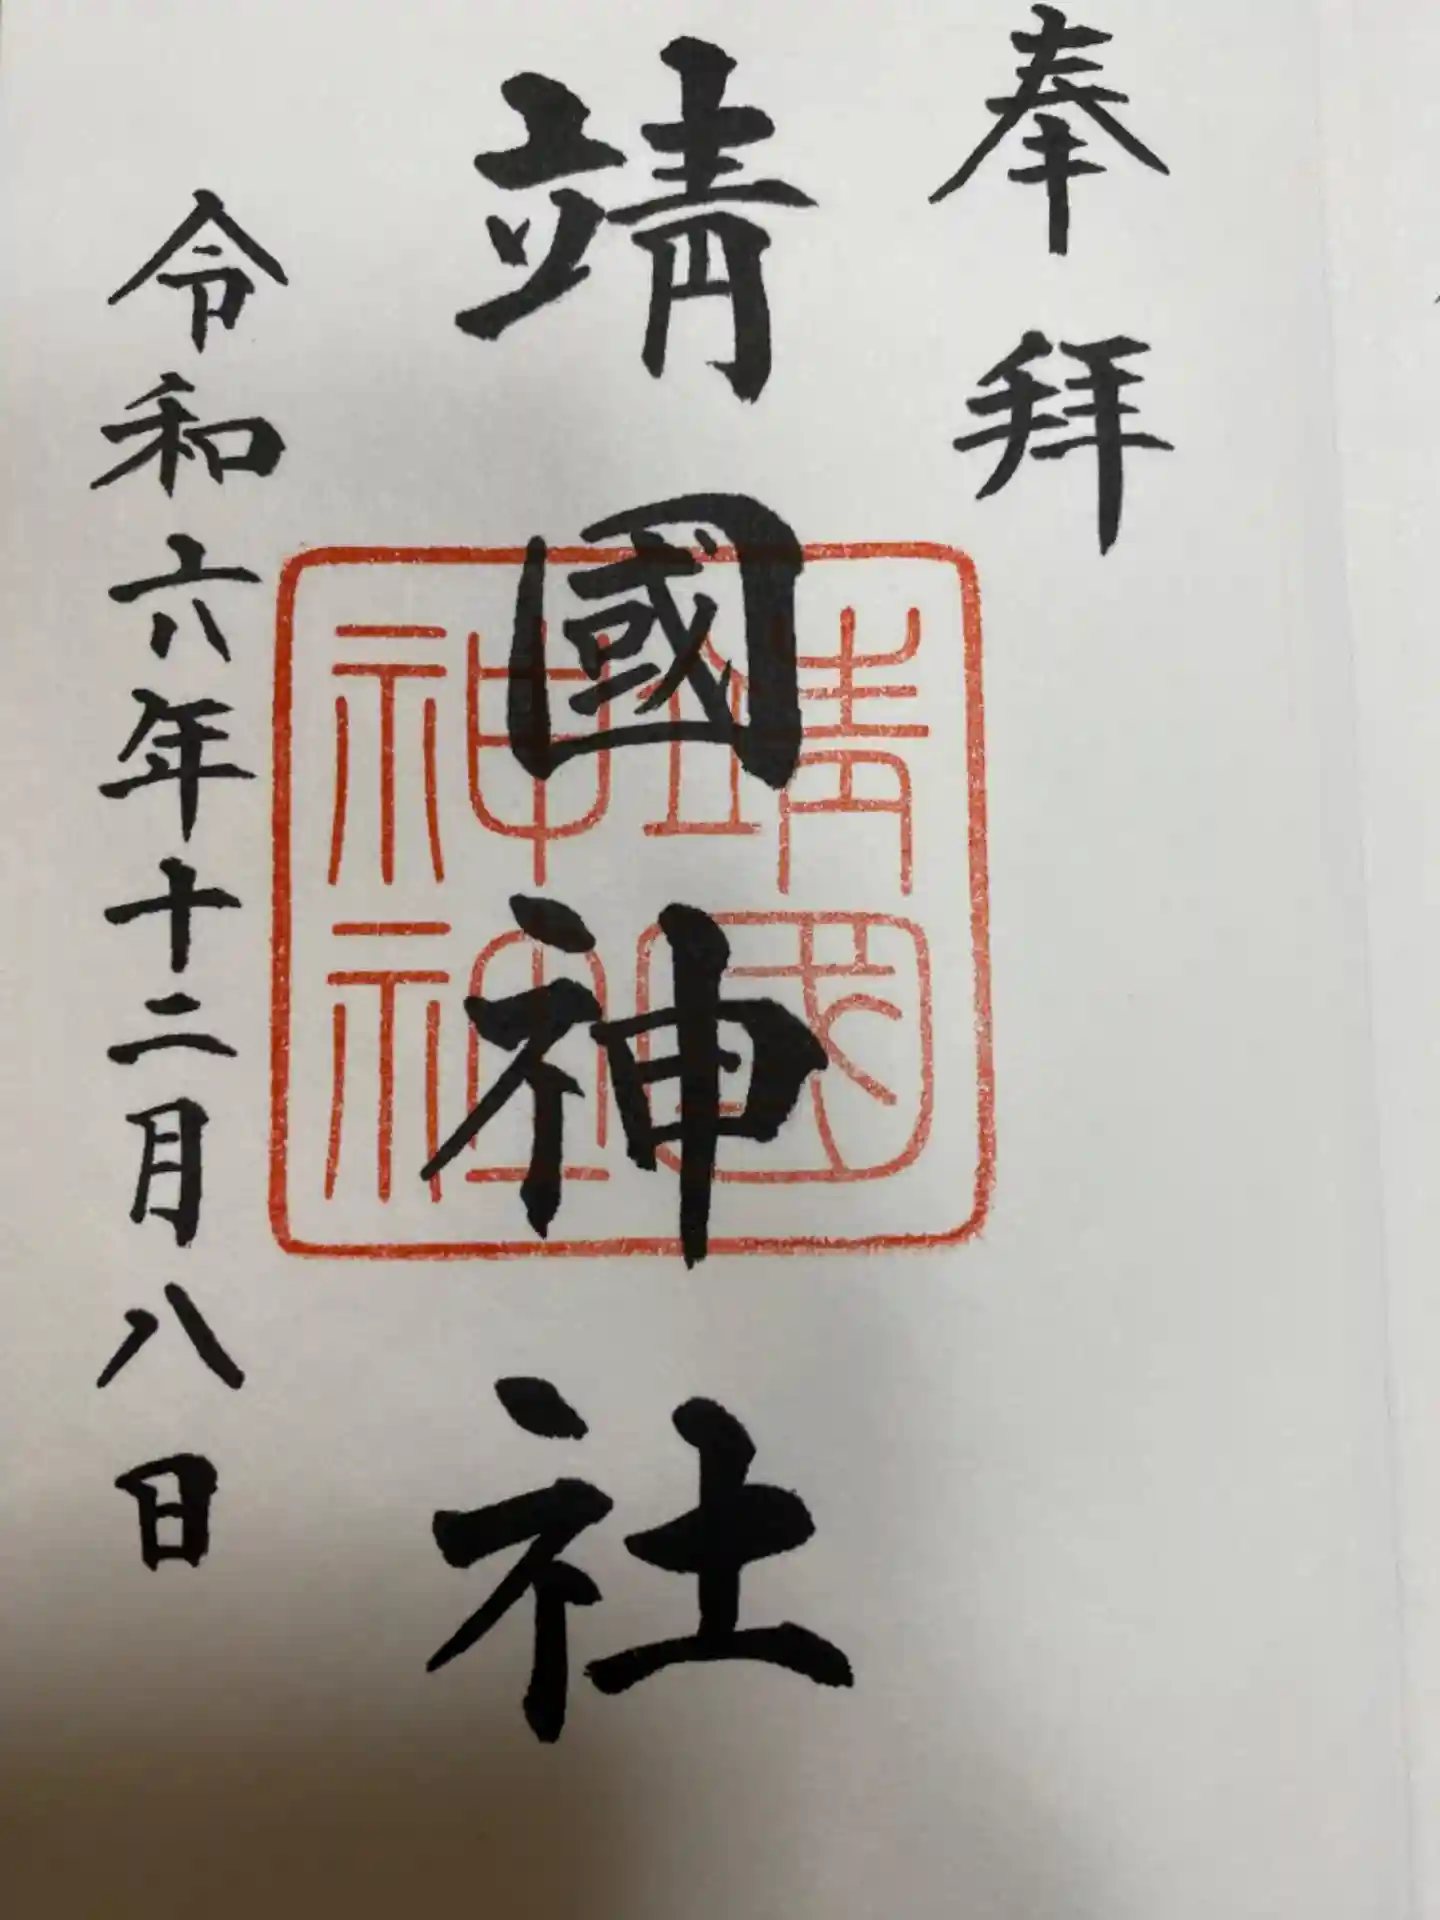 奉拜
靖國神社
靖國
神社
令和六年十二月八日